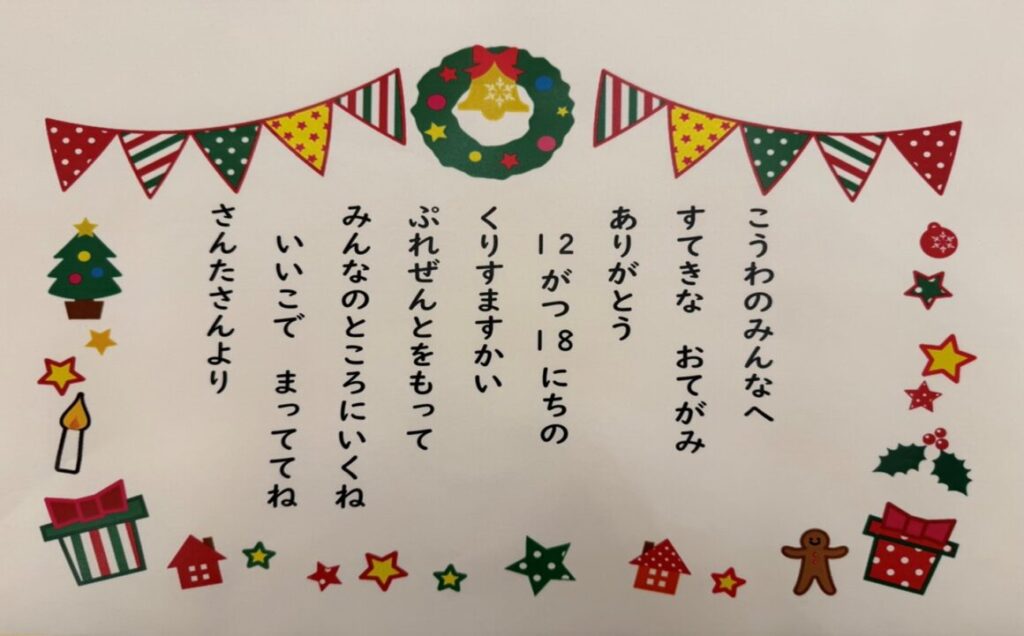 こうわのみんなへ
すてきな　おてがみ
ありがとう
12がつ18にちの
くりすますかい
ぷれぜんとをもって
みんなのところにいくね
いいこで　まっててね
さんたさんより